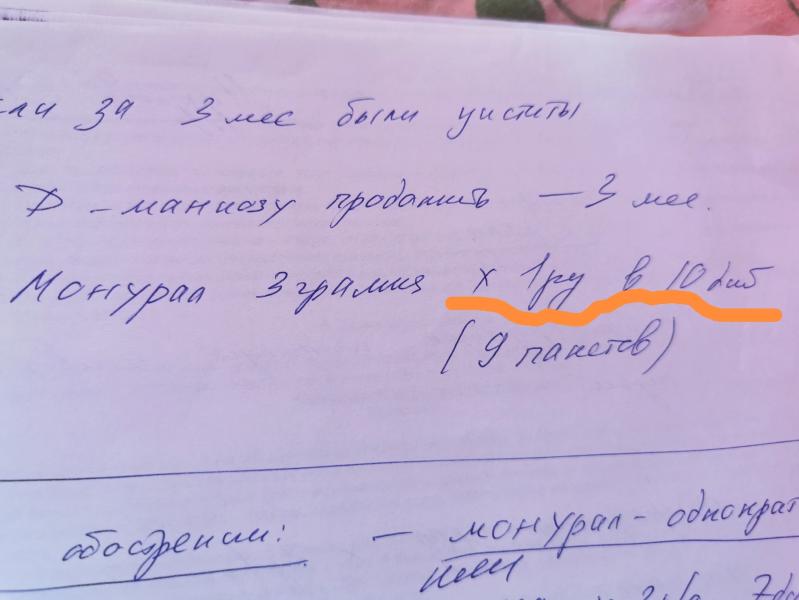 за 3 мес были циститы
D-маннозу продолжить - 3 мес.
Монурал 3 грамма х 1 р у в 10 дней
(9 пакетов)
обострении: - монурал - однократ
или